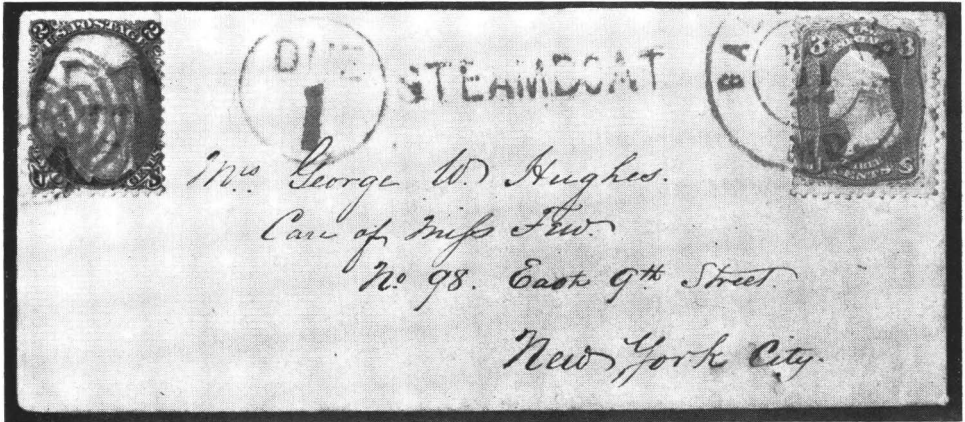 DUE
1
STEAMBOAT
BA
3 3
CENTS
Mrs. George W. Hughes.
Care of Miss Few.
No 98. East 9th Street.
New York City.